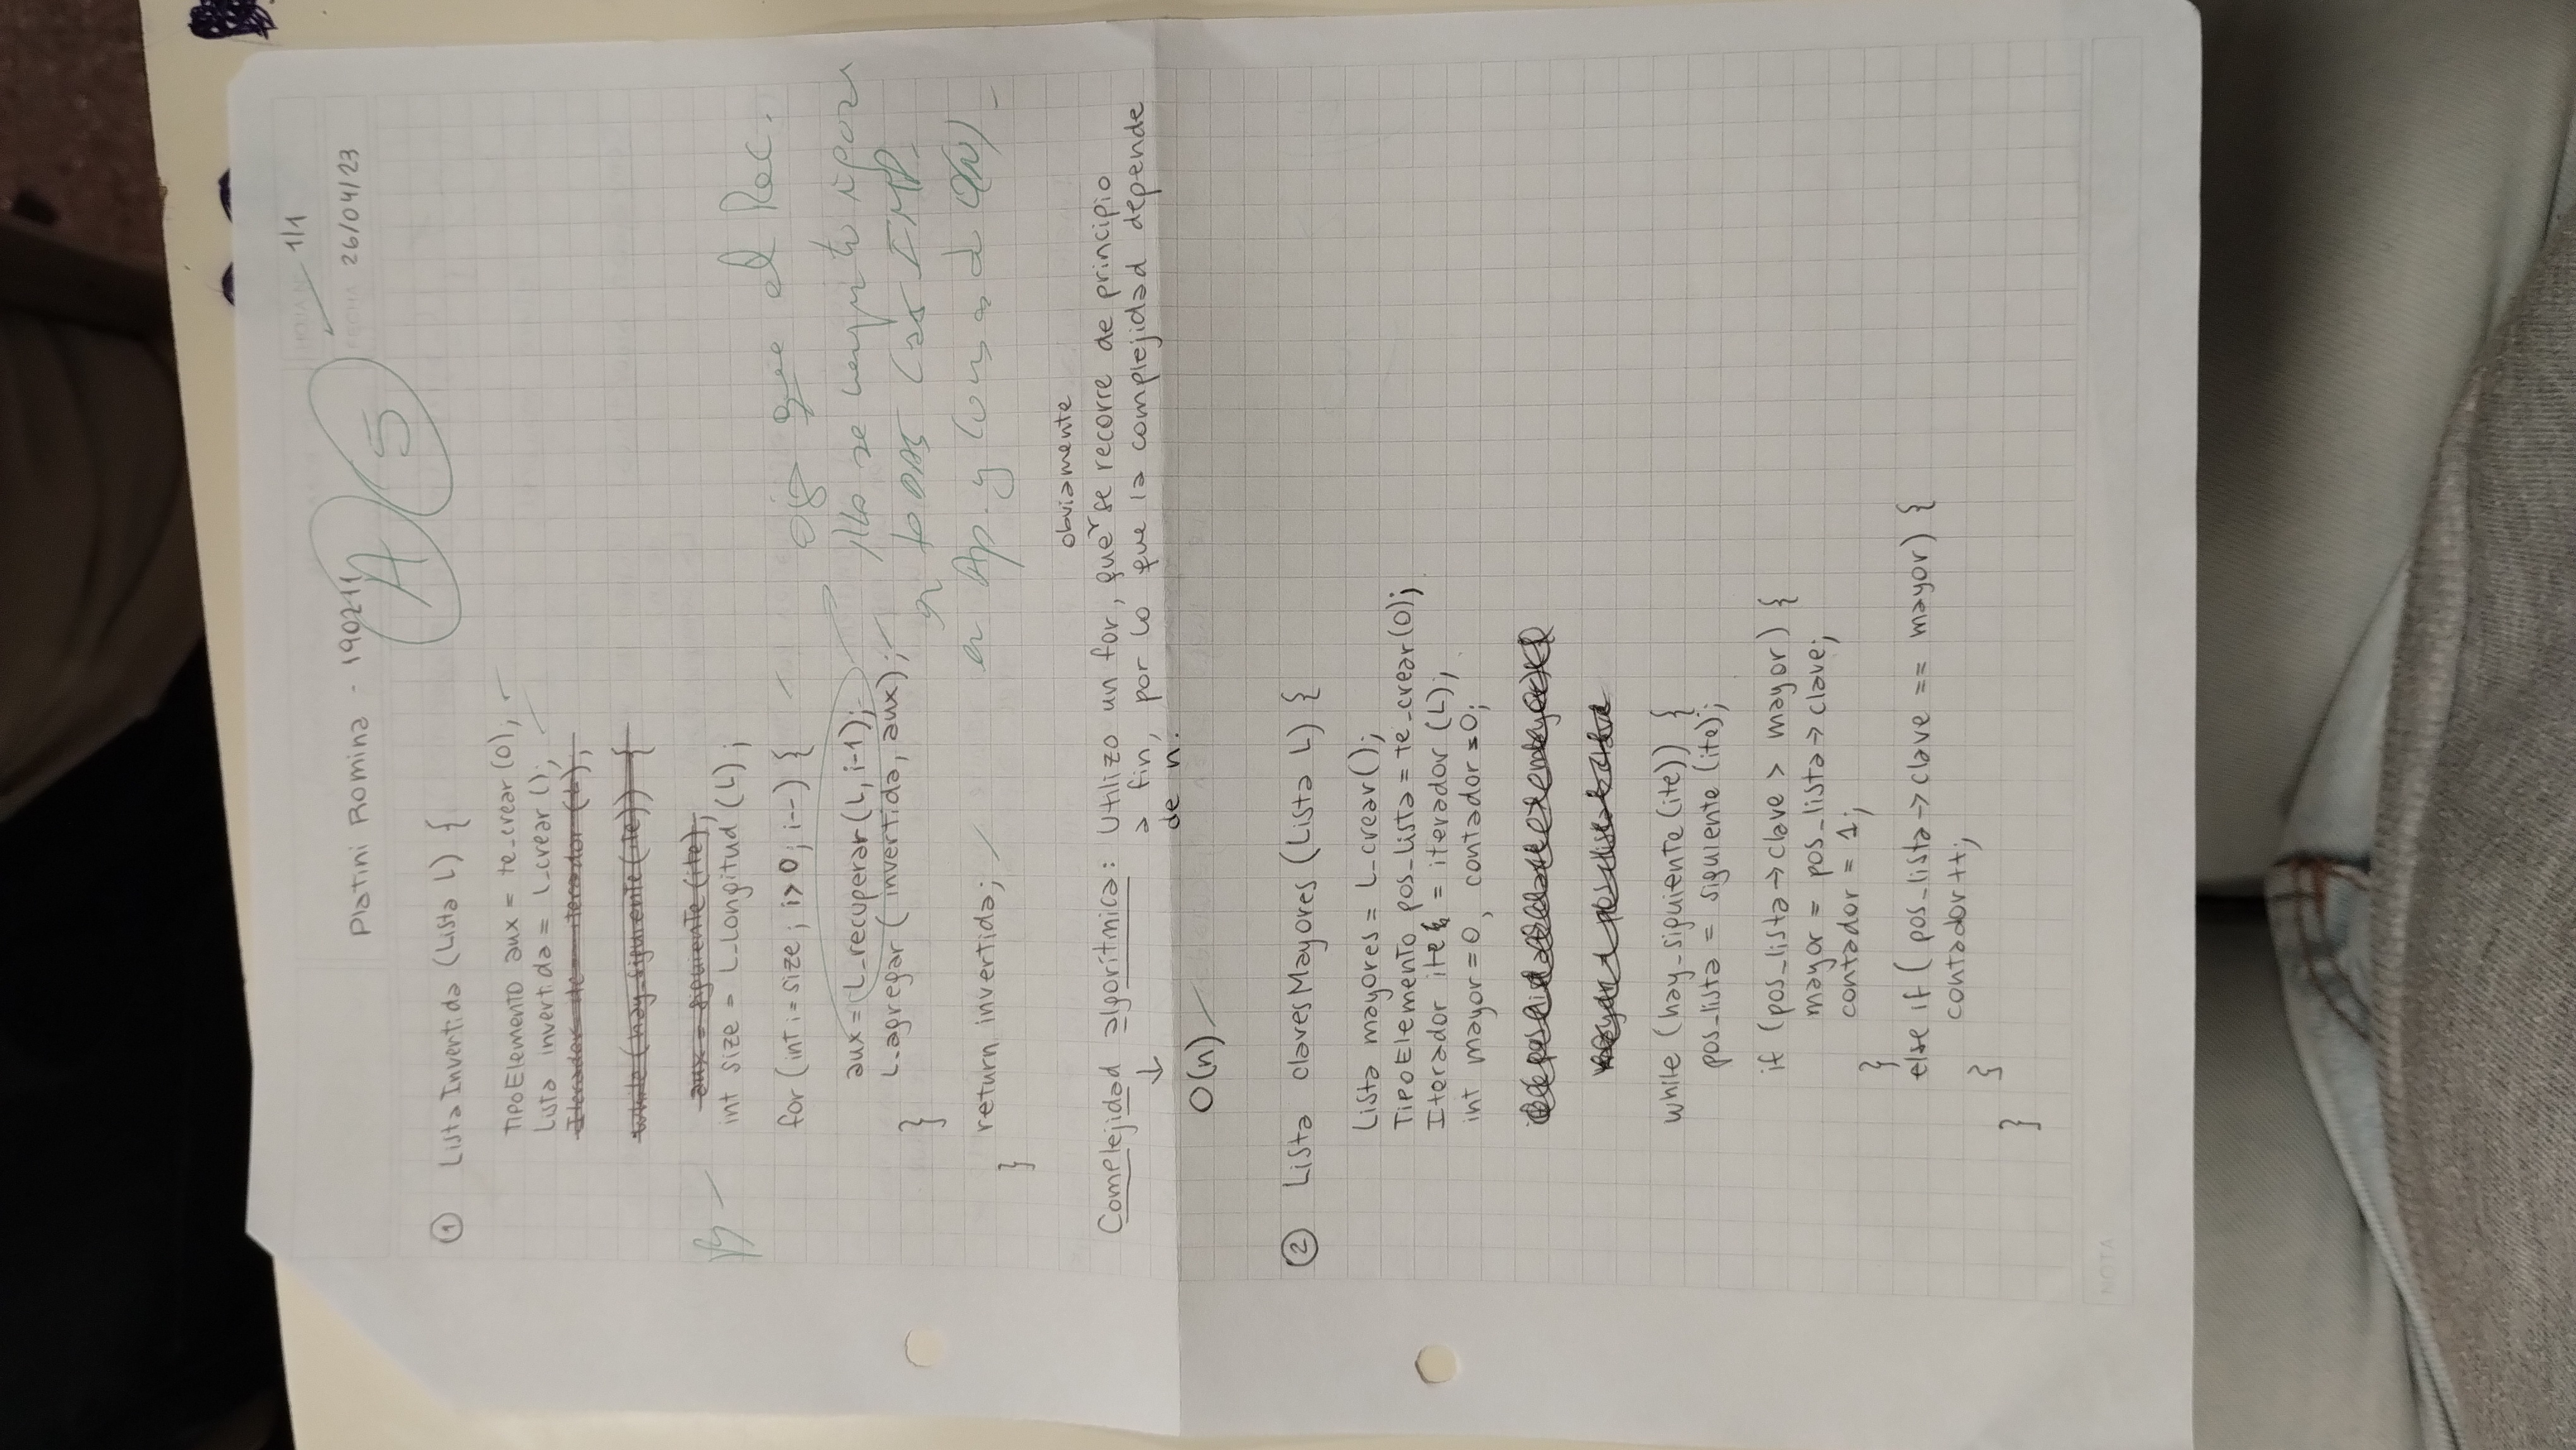 HOJA Nº 1/1
Platini Romina - 190211
FECHA 26/04/23
A 5
① Lista Invertida (Lista L) {
TipoElemento aux = te_crear (0);
Lista invertida = l_crear ();
Iterador ite = iterador (L);
while (hay_siguiente (ite)) {
aux = siguiente (ite);
B
int size = L_longitud (L);
for (int i = size; i > 0; i--) {
aux = L_recuperar (L, i-1);
L_agregar (invertida, aux);
}
return invertida;
}
ojo que el Rec.
No se
a todas las IMP.
en Ap. y O(N)
obviamente
Complejidad algorítmica: Utilizo un for, que se recorre de principio
a fin, por lo que la complejidad depende
de n.
↓
O(n)
② Lista clavesMayores (Lista L) {
Lista mayores = L_crear();
TipoElemento pos_lista = te_crear (0);
Iterador ite = iterador (L);
int mayor = 0, contador = 0;
while (hay_siguiente (ite)) {
pos_lista = siguiente (ite);
if (pos_lista → clave > mayor) {
mayor = pos_lista → clave;
contador = 1;
}
else if ( pos_lista → clave == mayor) {
contador ++;
}
}
NOTA